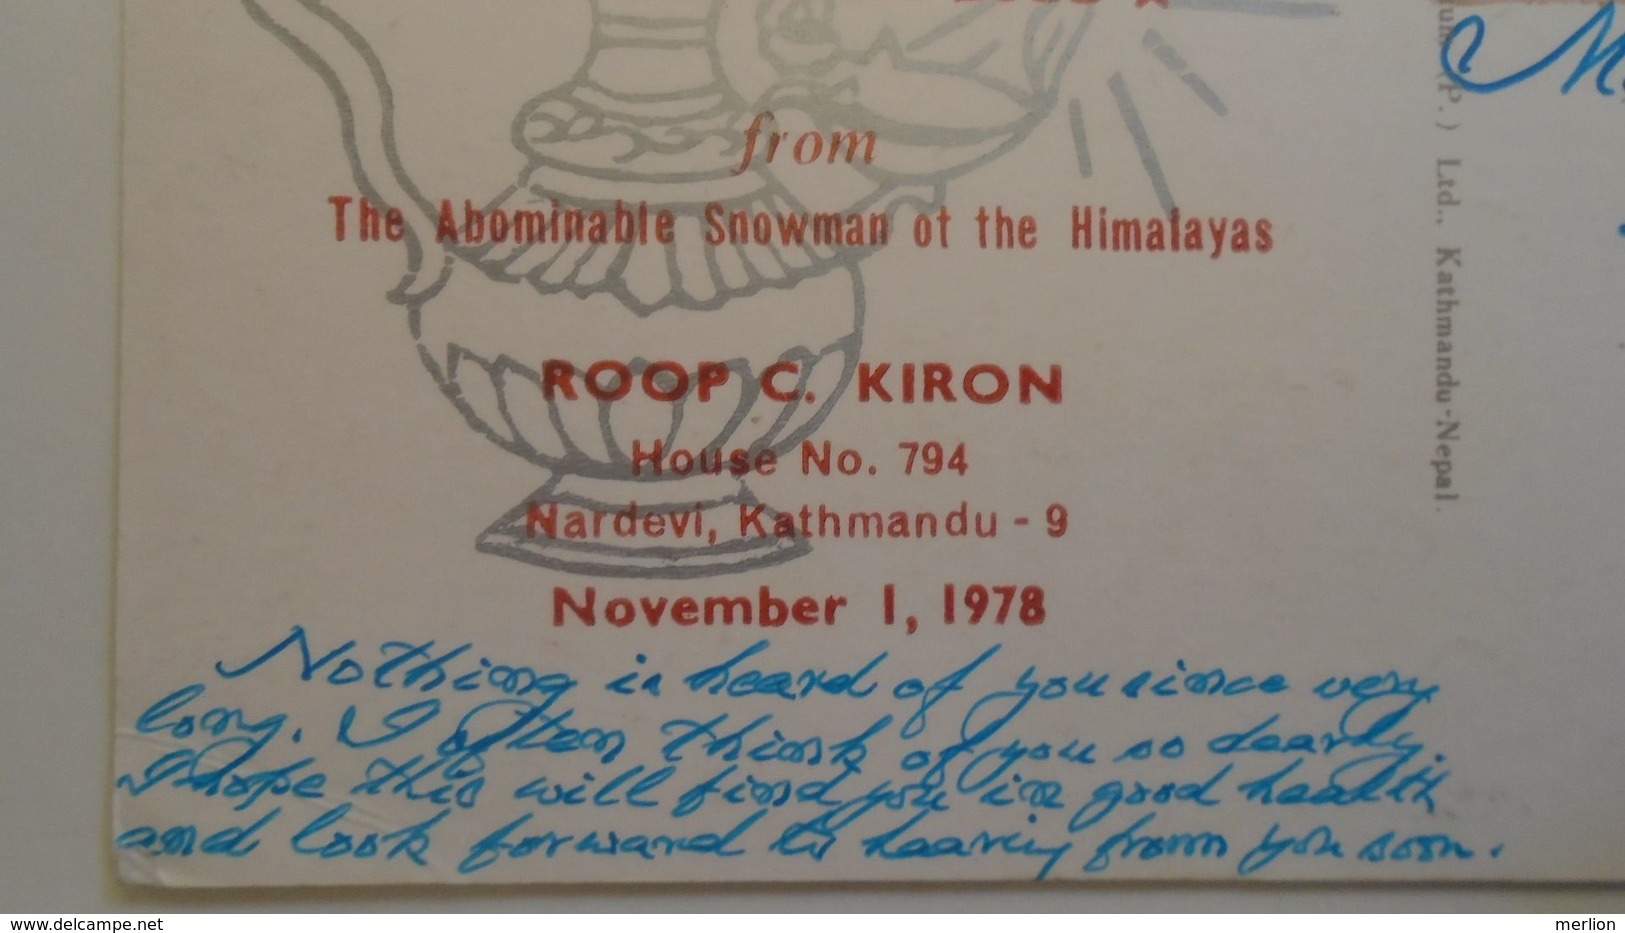 from
The Abominable Snowman of the Himalayas
ROOP C. KIRON
House No. 794
Nardevi, Kathmandu - 9
November 1, 1978
Nothing is heard of you since very
long. I often think of you so dearly.
I hope this will find you in good health
and look forward to hearing from you soon.
(P.) Ltd., Kathmandu-Nepal.
delcampe.net
merlion